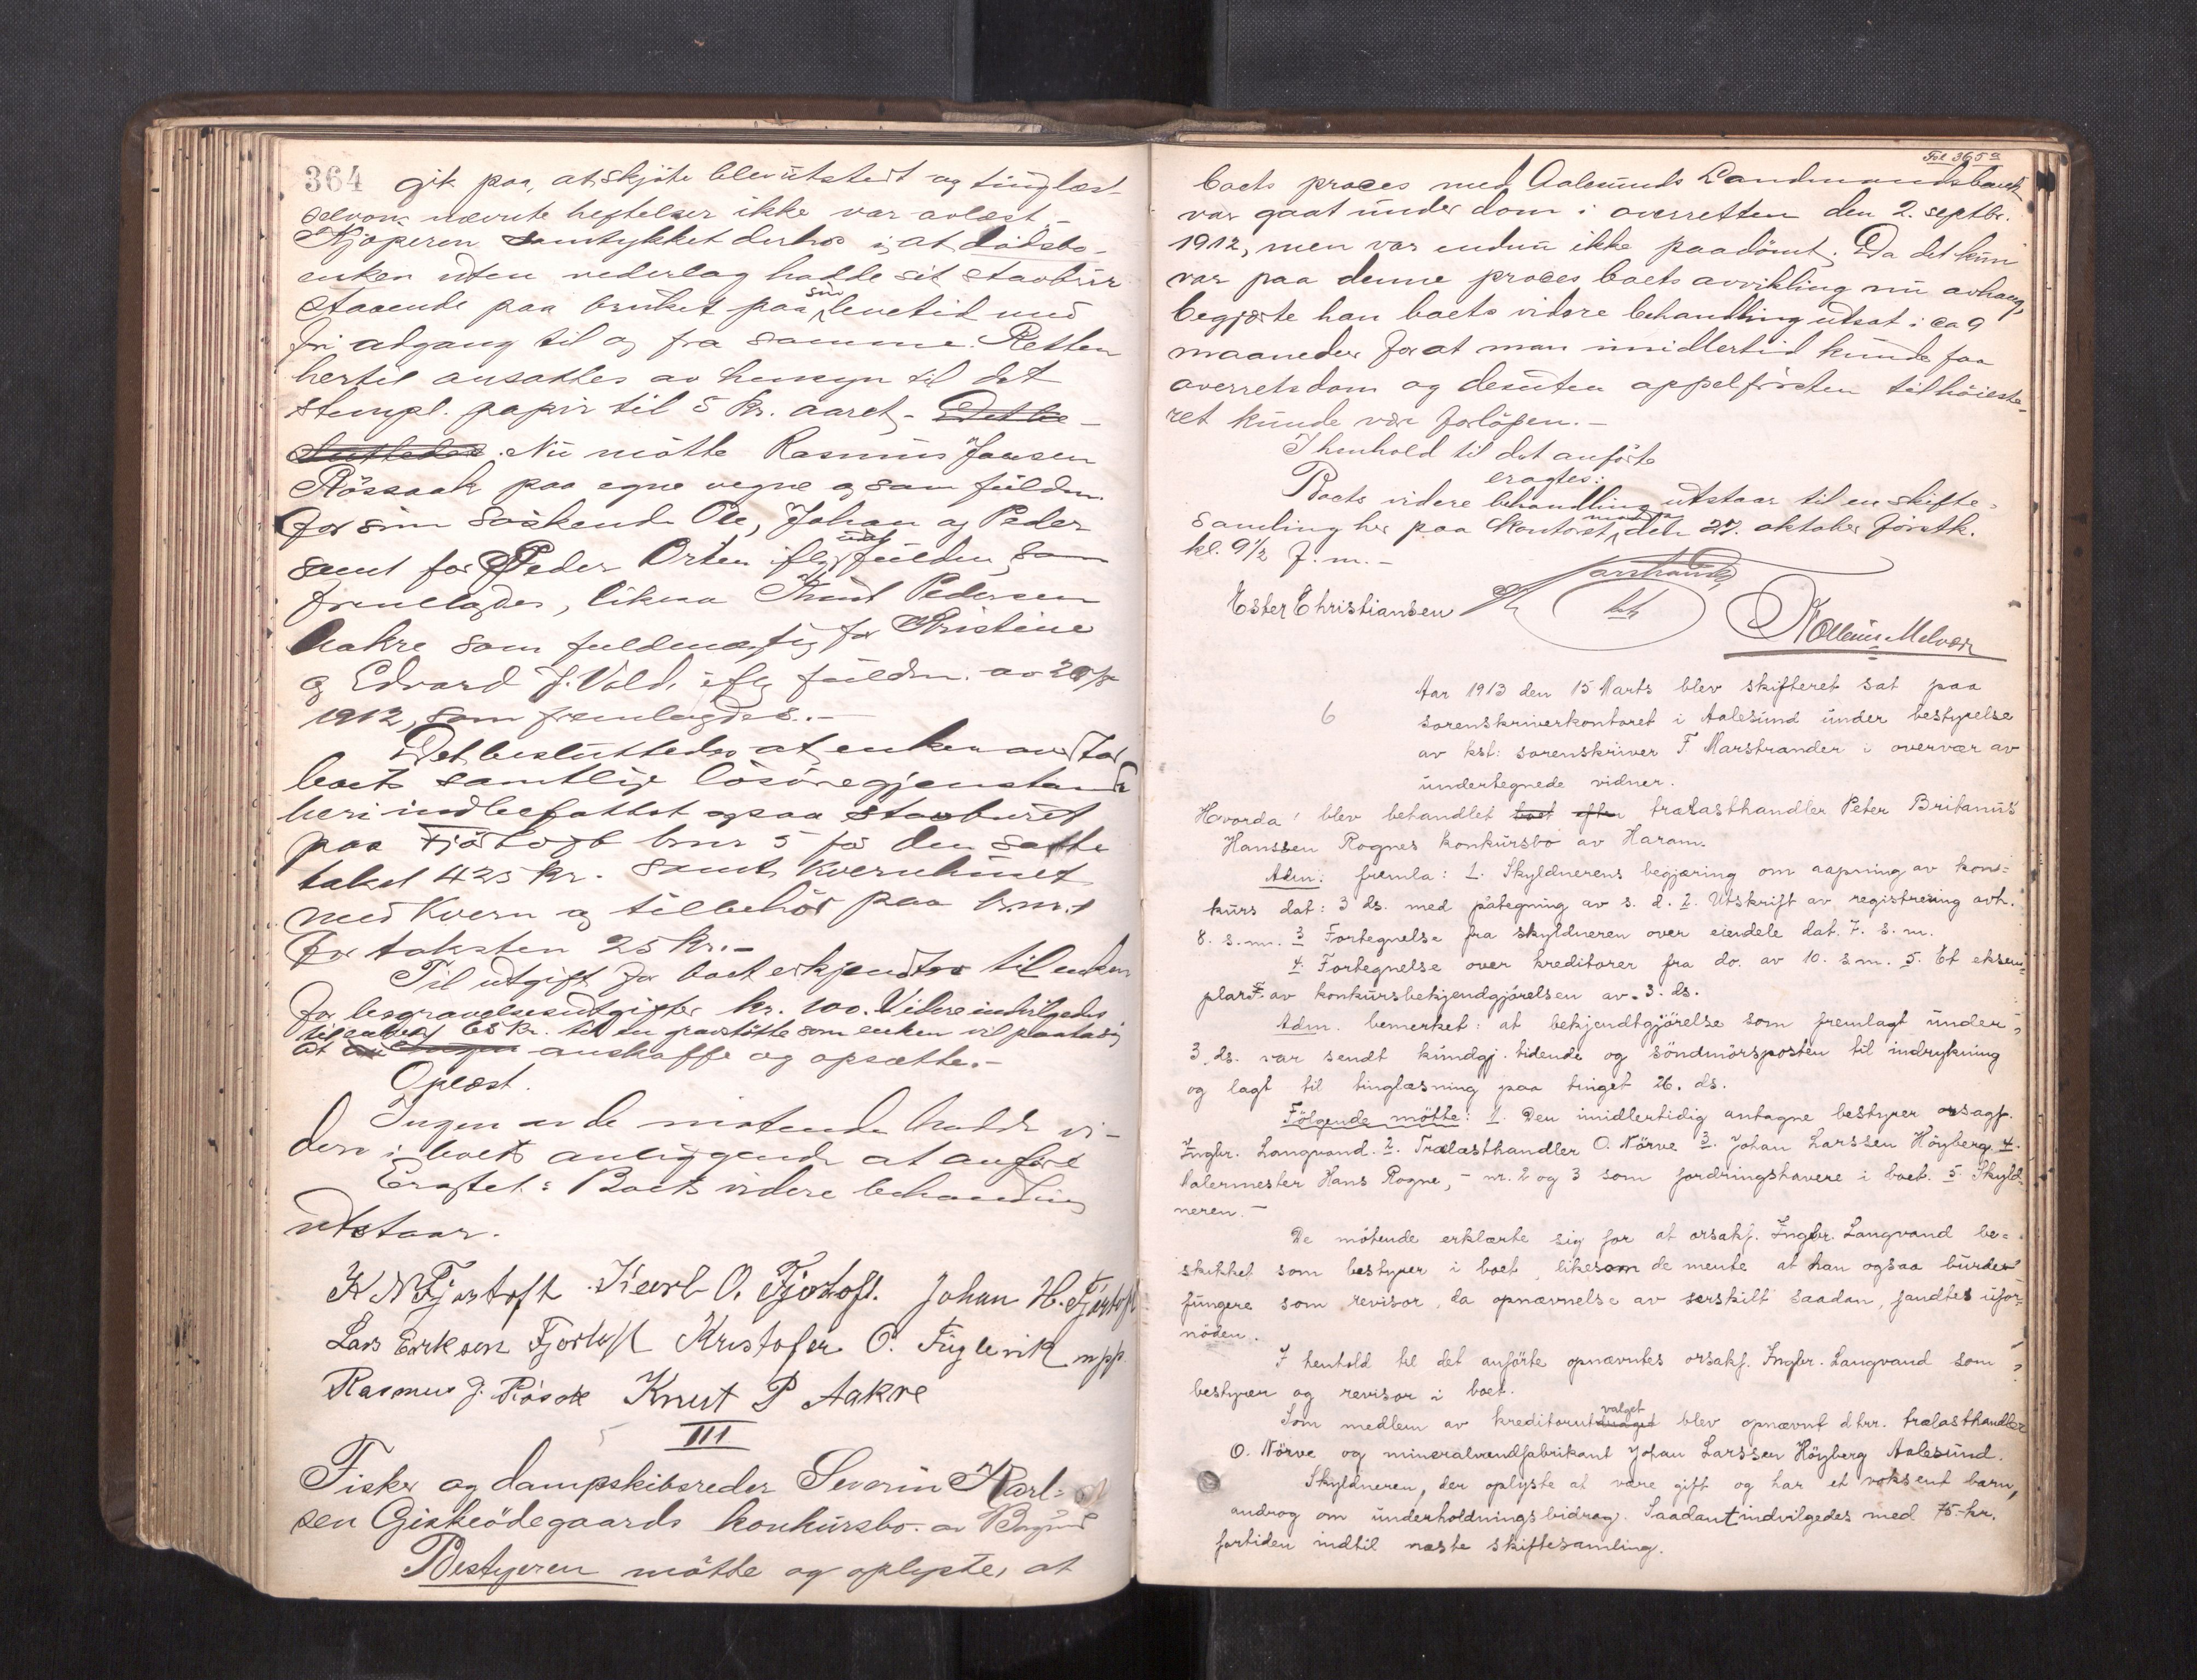 364 gik paa, at skjöte blev utstedt og tinglæst
selvom nævnte heftelser ikke var avlæst. -
Kjöperen samtykket derhos i, at dödsbo-
enken uten vederlag hadde sit stavbur
staaende paa bruket paa sin levetid med
fri adgang til og fra samme. Retten
hertil ansattes av hensyn til det
stempl. papir til 5 kr. aaret. - Det be-
sluttedes. Nu mötte Rasmus Jansen
Rössaak paa egne vegne og som fuldm.
for sine söskende Ole, Johan og Peder
samt for Peder Orten iflg. fuldm., som
fremlagdes, likesaa Knut Pedersen
Aakre som fuldmægtig for Kristine
og Edvard J. Vold, iflg. fuldm. av
1912, som fremlagdes. -
Det besluttedes at enken overtar
boets samtlige lösöregjenstande
heri indbefattet ogsaa stavburet
paa Fjörtoft bnr 5 for den satte
takst 425 kr. samt kvernhuset
med kvern og tilbehör paa b.nr. 1
for taksten 25 kr. -
Til utgift for boet erkjendtes til enken
for begravelsesutgifter kr. 100. Videre indvilgedes
til enken 65 kr. til en gravstötte som enken vil paata sig
at anskaffe og opsætte. -
Oplæst.
Ingen av de mötende hadde vi-
dere i boets anliggende at anföre
Eragtet: Boets videre behandling
utstaar.
K N Fjørtoft Karl O. Fjørtoft. Johan H. Fjørtoft
Lars Eriksen Fjørtoft Kristofer O. Fuglevik mpp.
Rasmus J. Røsok Knut P Aakre
III
Fisker og dampskibsreder Severin Karl-
sen Giskeödegaards konkursbo. av Borgund
Bestyreren mötte og oplyste, at
Fol 365 a
boets proces med Aalesunds Landmandsbank
var gaat under dom i overretten den 2. septbr.
1912, men var endnu ikke paadömt. Da det kun
var paa denne proces boets avvikling nu avhang,
begjærte han boets videre behandling utsat i ca 9
maaneder for at man imidlertid kunde faa
overretsdom og desuten appelfristen til höieste-
ret kunde være forlöpen. -
I henhold til det anförte
eragtes:
Boets videre behandling utstaar til en skifte-
samling her paa kontoret, mandag den 27. oktober förstk.
kl. 9½ f.m. -
Marstrander
kst
Ester Christiansen
Melvær
6
Aar 1913 den 15 Marts blev skifteret sat paa
sorenskriverkontoret i Aalesund under bestyrelse
av kst: sorenskriver F Marstrander i overvær av
undertegnede vidner.
Hvorda: blev behandlet boet efter trælasthandler Peter Britanus
Hanssen Rognes konkursbo av Haram.
Adm: fremla: 1. Skyldnerens begjæring om aapning av kon-
kurs dat: 3 ds. med påtegning av s. d. 2. Utskrift av registrering avh.
8. s.m. 3 Fortegnelse fra skyldneren over eiendele dat. 7. s. m.
4. Fortegnelse over kreditorer fra do. av 10. s.m. 5. Et eksem-
plar av konkursbekjendgjörelsen av 3. ds.
Adm. bemerket: at bekjendtgjörelse som fremlagt under
3. ds. var sendt kundgj. tidende og söndmörsposten til indrykning
og lagt til tinglæsning paa tinget 26. ds.
Fölgende mötte: 1. Den imidlertidig antagne bestyrer orsagf.
Ingbr. Langvand. 2. Trælasthandler O. Nörve 3. Johan Larssen Höyberg. 4.
Malermester Hans Rogne, - nr. 2 og 3 som fordringshavere i boet. 5 Skyld-
neren. -
De mötende erklærte sig for at orsakf. Ingbr. Langvand be-
skikket som bestyrer i boet, likesom de mente at han ogsaa burde
fungere som revisor, da opnævnelse av særskilt saadan, fandtes ufor-
nöden.
I henhold til det anförte opnævntes orsakf. Ingbr. Langvand som
bestyrer og revisor i boet.
Som medlem av kreditorutvalget blev opnævnt d hrr. trælasthandler
O. Nörve og mineralvandfabrikant Johan Larssen Höyberg Aalesund.
Skyldneren, der oplyste at være gift og har et voksent barn,
androg om underholdningsbidrag. Saadant indvilgedes med 75 kr.
fortiden indtil næste skiftesamling.